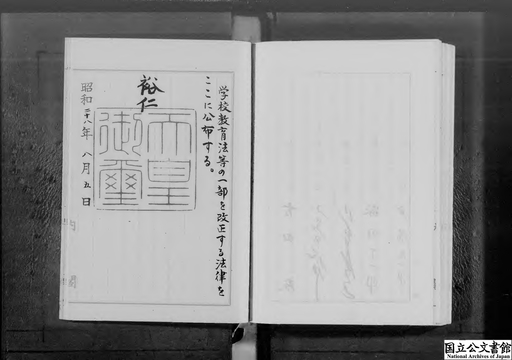 学校教育法等の一部を改正する法律を
ここに公布する。
裕仁
天皇
御璽
昭和二十八年 八月五日
内閣
国立公文書館
National Archives of Japan